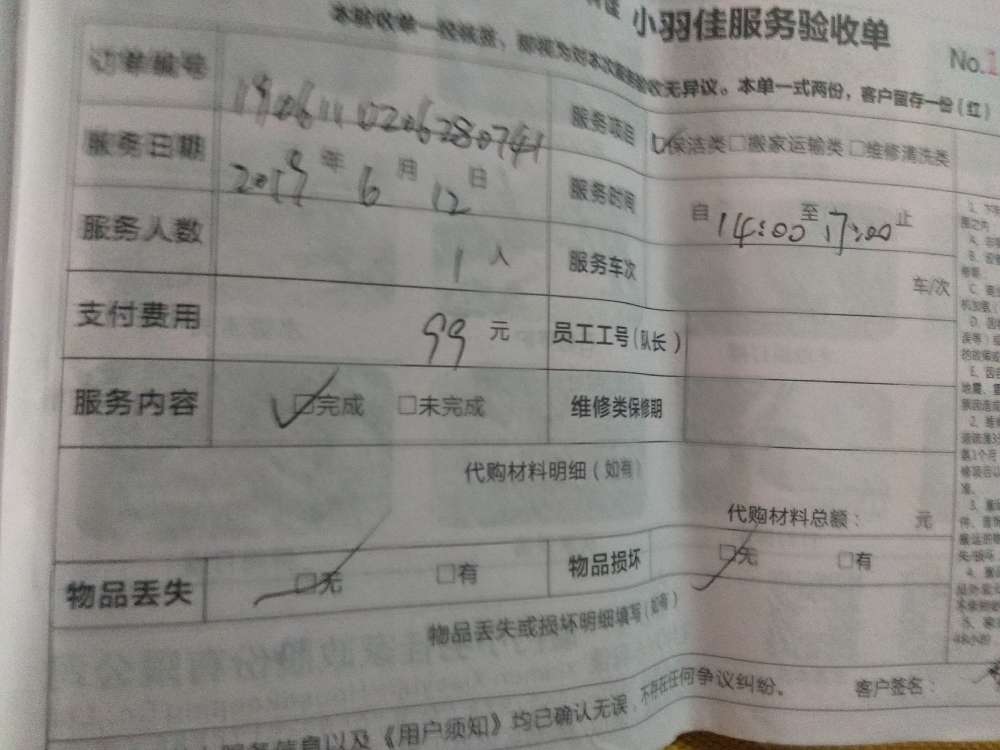 小羽佳服务验收单
No.1
本验收单一经核签，即视为对本次服务验收无异议。本单一式两份，客户留存一份（红）
订单编号 19061110206280741 服务项目 ☑保洁类 □搬家运输类 □维修清洗类
服务日期 2019年 6月 12日 服务时间 自14:00至17:00止
服务人数 1人 服务车次 车/次
支付费用 99元 员工工号（队长）
服务内容 ☑完成 □未完成 维修类保修期
代购材料明细（如有）
代购材料总额： 元
物品丢失 ☑无 □有 物品损坏 ☑无 □有
物品丢失或损坏明细填写（如有）
服务信息以及《用户须知》均已确认无误，不存在任何争议纠纷。 客户签名：